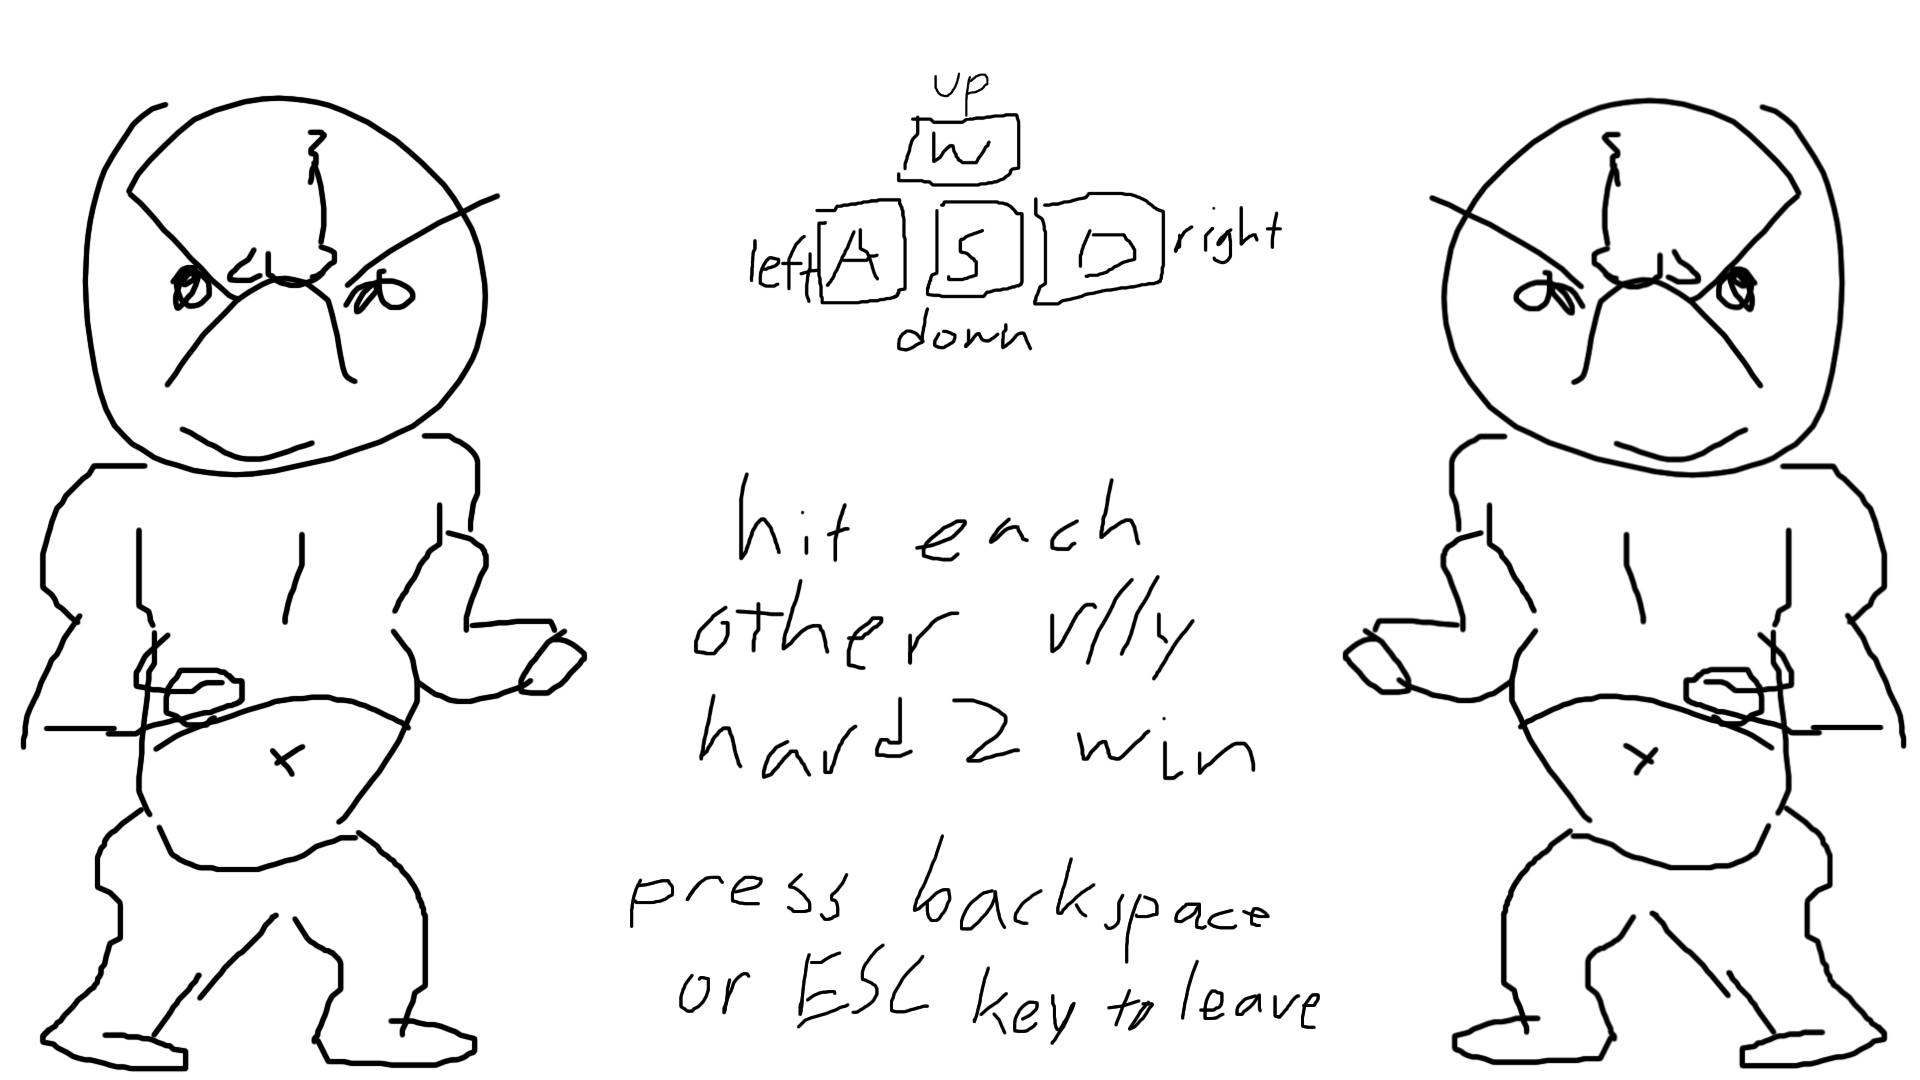 up
W
left A S D right
down
hit each
other rlly
hard 2 win
press backspace
or ESC key to leave